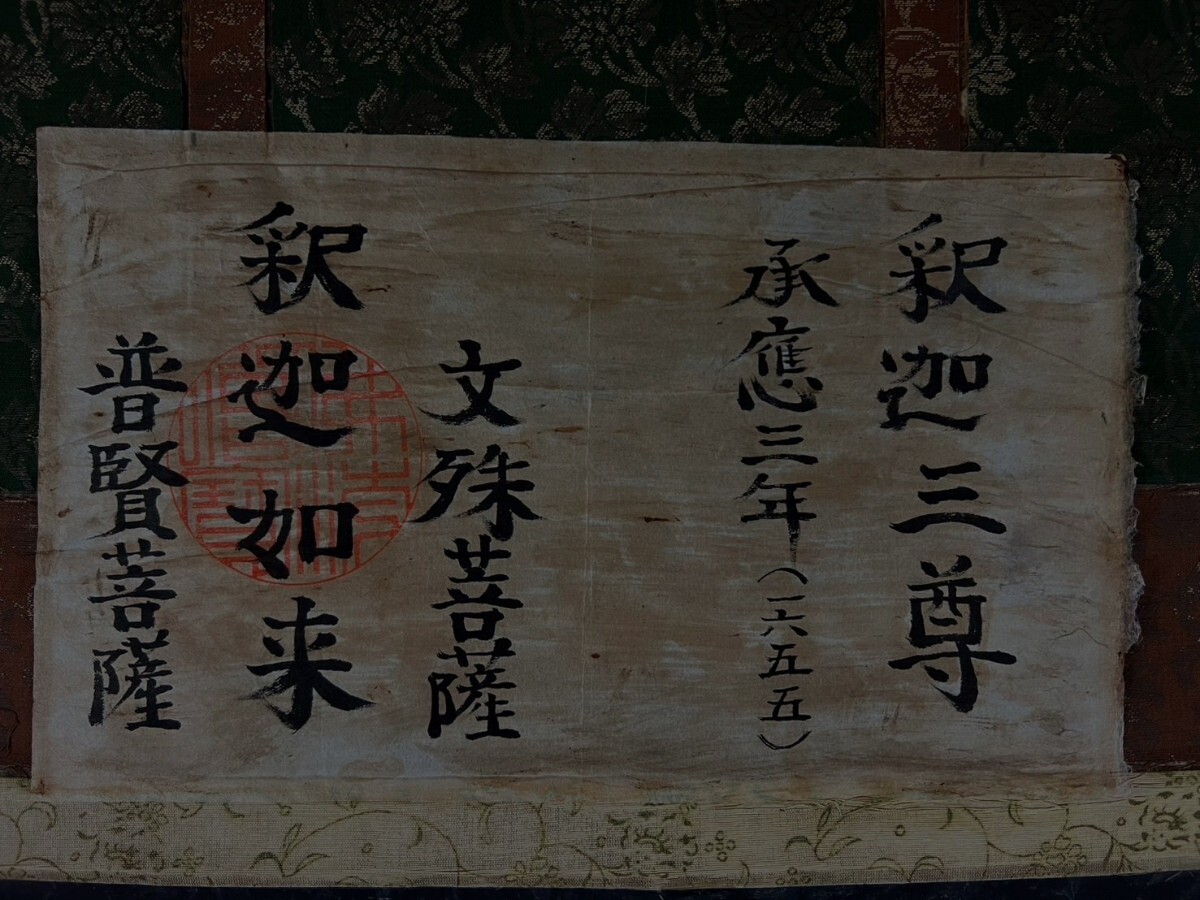 釈迦三尊
承應三年(一六五五)
文殊菩薩
釈迦如来
普賢菩薩